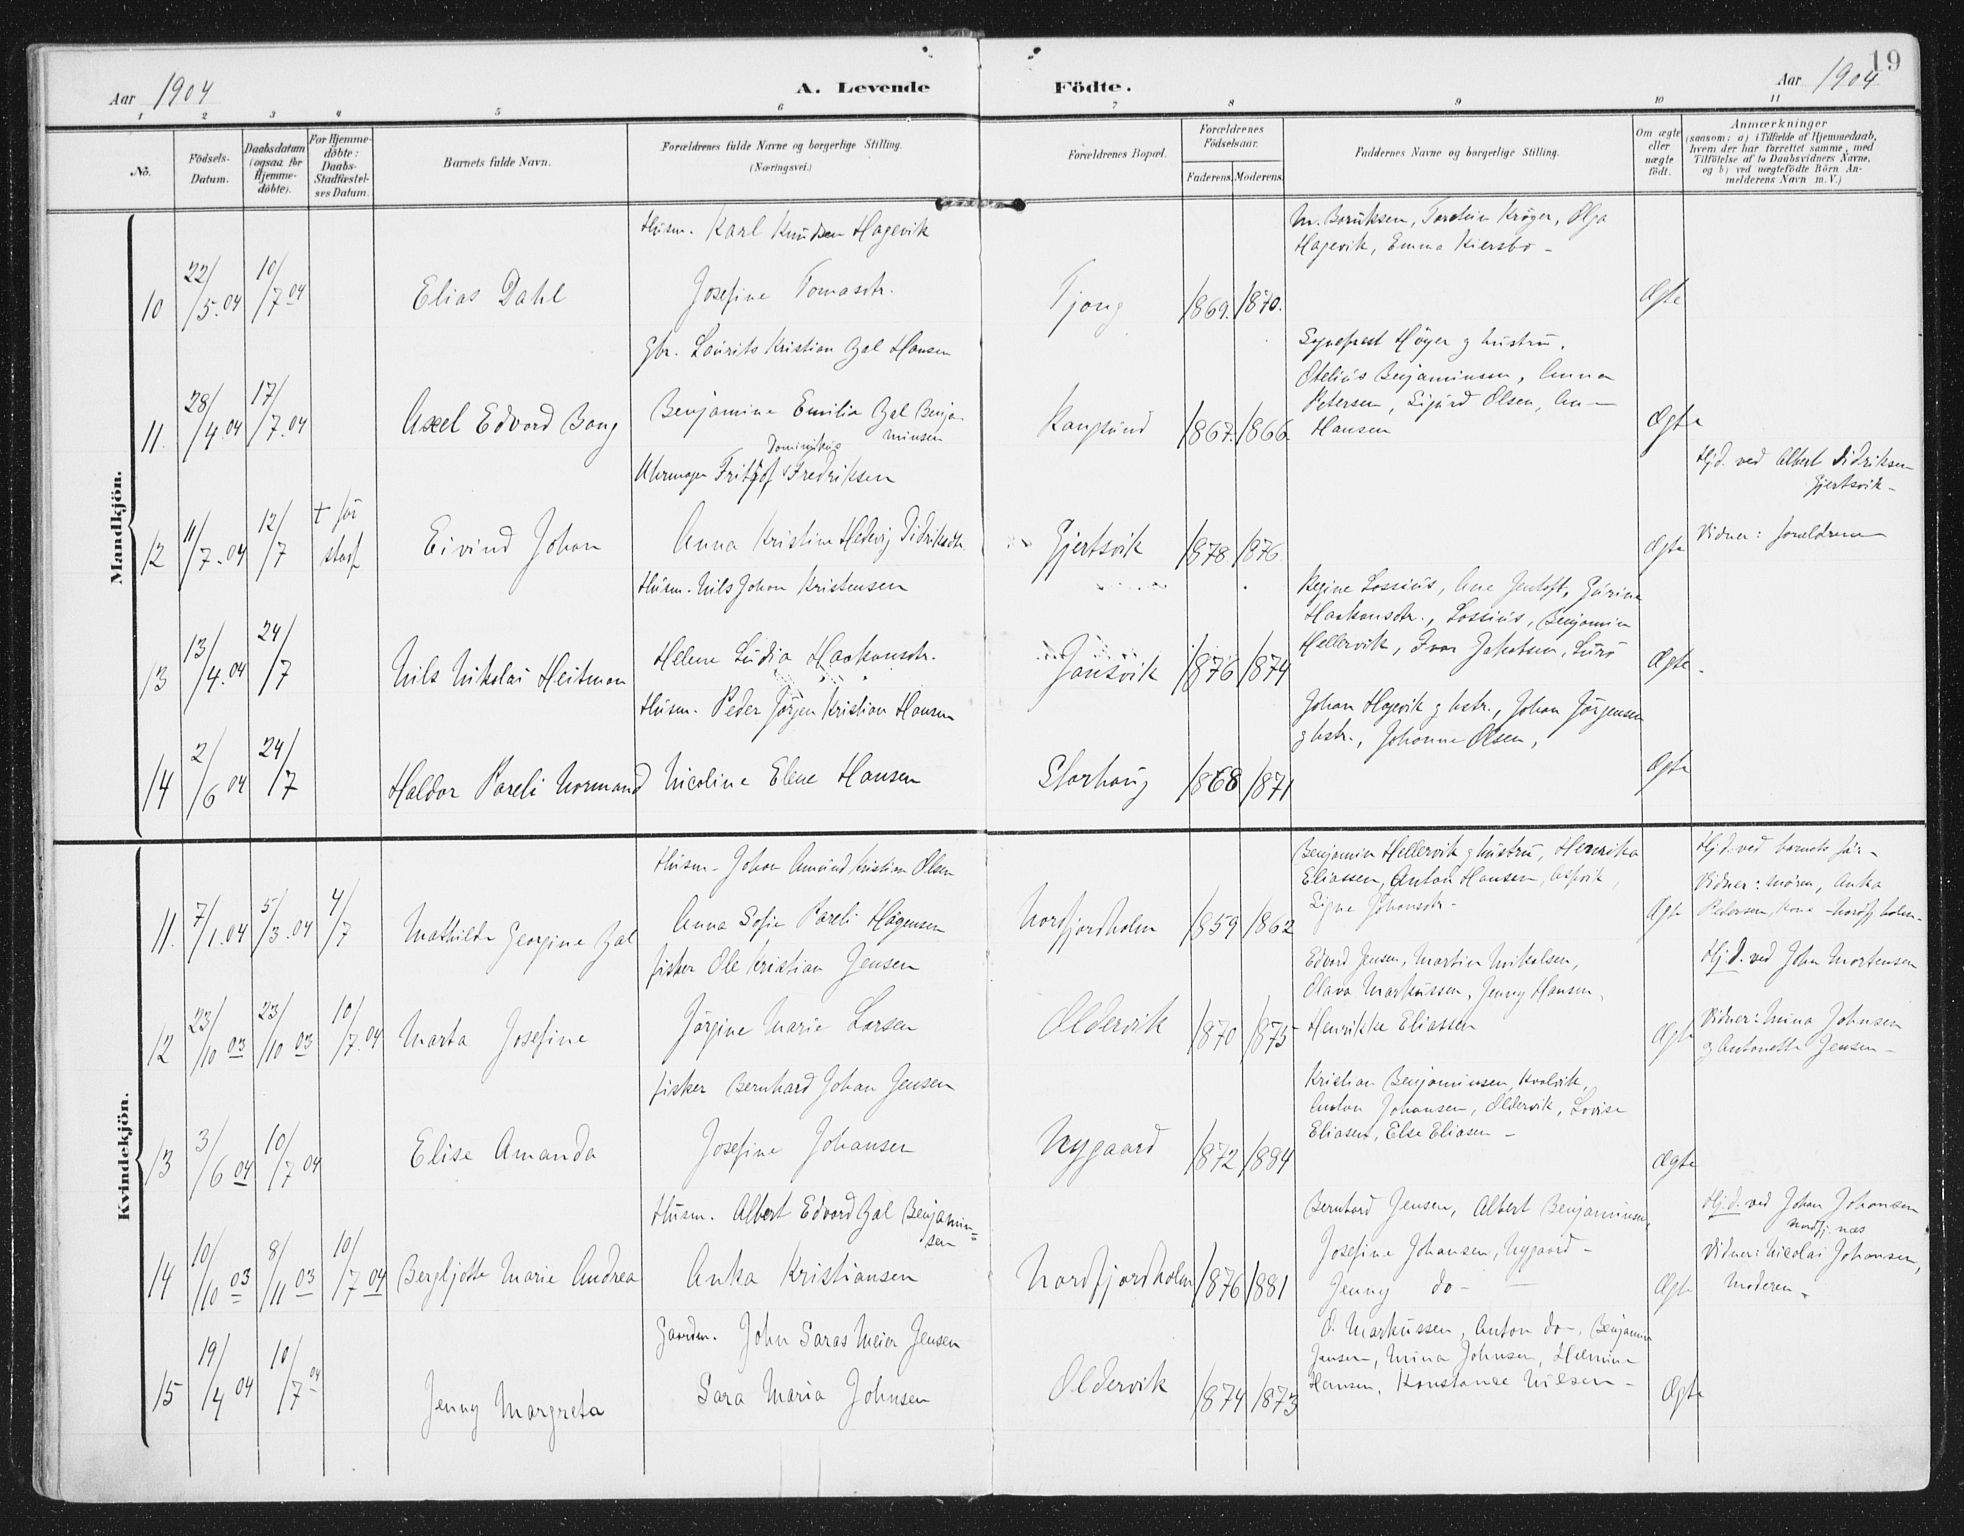 19
Aar 1904
A. Levende Födte.
Aar 1904
1 2 3 4 5 6 7 8 9 10 11
No.
Födsels-Datum.
Daabsdatum (ogsaa for Hjemme-döbte).
For Hjemme-döbte: Daabs-Stadfæstel-ses Datum.
Barnets fulde Navn.
Forældrenes fulde Navne og borgerlige Stilling.
(Næringsvei.)
Forældrenes Bopæl.
Forældrenes Födselsaar.
Faderens. Moderens.
Faddernes Navne og borgerlige Stilling.
Om ægte eller uægte födt.
Anmærkninger
(saasom: a) i Tilfælde af Hjemmedaab,
hvem der har forrettet samme, med
Tilföielse af to Daabsvidners Navne,
og b) ved uægtefödte Börn An-
melderens Navn m. V.)
Mandkjön.
Husm. Karl Knudsen Hagevik
Hagevik, Emma Kiersbo -
10 22/5.04 10/7 04 Elias Dahl Josefine Tomasdtr. Tjong 1869. 1870. Ægte
Gbr. Laurits Kristian Zal Hansen
Høyer g hustru.
Otelius Benjaminsen, Anna
11. 28/4.04 17/7.04 Axel Edvard Bang Benjamine Emilie Zal Benja-minsen Kangsund 1867. 1866 Petersen, Sigurd Olsen, An- Hansen Ægte
Dominikus
Fritjof Fredriksen
Hjd. ved Albert Didriksen Gjertsvik -
12 11/7.04 12/7 + før stadf Eivind Johan Anna Kristine Hedevig Didriksdtr Gjertsvik 1878. 1876. Ægte Vidner: foreldrene
Husm. Nils Johan Kristensen
Regine Lossius, Ane Jentoft, Gurine
Haakonsdtr., Lossius, Benjamin
13 13/4.04 24/7 Nils Nikolai Heitman Helene Ludia Haakonsdtr. Jansvik 1876 1874 Hellervik, Ivar Jakobsen, Ægte.
Husm. Peder Jörgen Kristian Hansen
Johan Hagevik g hstr., Johan Jörgensen
g hstr., Johanne Olsen,
14 2/6 04 24/7 Haldor Pareli Normand Nicoline Elene Hansen Storhaug 1868 1871 Ægte
Kvindekjön.
Husm. Johan Amund Kristian Olsen
Benjamin Hellervik g hustru, Henrika
Eliassen, Anton Hansen,
Hjd. ved barnets far -
Vidner: moren, Anka
11. 7/1.04 5/3.04 4/7 Mathilde Georgine Zal Anna Sofie Pareli Hågensen Nordfjordholm 1859 1862 Signe Johansdtr- Ægte Petersen, kone
fisker Ole Kristian Jensen
Edvard Jensen, Martin Nikolsen,
Olava Markussen, Jenny Hansen,
Hj.d. ved John Mortensen
12 23/10 03 23/10 03 10/7.04 Marta Josefine Jörgine Marie Larsen Oldervik 1870 1875 Henrikke Eliassen Ægte Vidner: Mina Johnsen
g Antonette Jensen -
fisker Bernhard Johan Jensen
Kristian Benjaminsen, Kvalvik,
Anton Johansen, Oldervik, Lovise
13 3/6 04 10/7 04 Elise Amanda Josefine Johansen Nygaard 1872 1884 Eliasen, Else Eliasen - Ægte
Husm. Albert Edvard Zal Benjamin=sen
Bernhard Jensen, Albert Benjaminsen,
Josefine Johansen, Nygaard -
Hj.d. ved Johan Johansen
Nordfj. næs
14 10/10 03 8/11 03 10/7 04 Bergljotte Marie Andrea Anka Kristiansen Nordfjordholm 1876 1881 Jenny do - Ægte Vidner: Nicolai Johansen,
Moderen
Gaardm. John Saras Meier Jensen
O. Markussen, Anton do -, Benjamin
Jensen, Mina Johnsen, Helmine
15 19/4 04 10/7 04 Jenny Margreta Sara Maria Johnsen Oldervik 1874 1873 Hansen, Konstanse Nilsen - Ægte